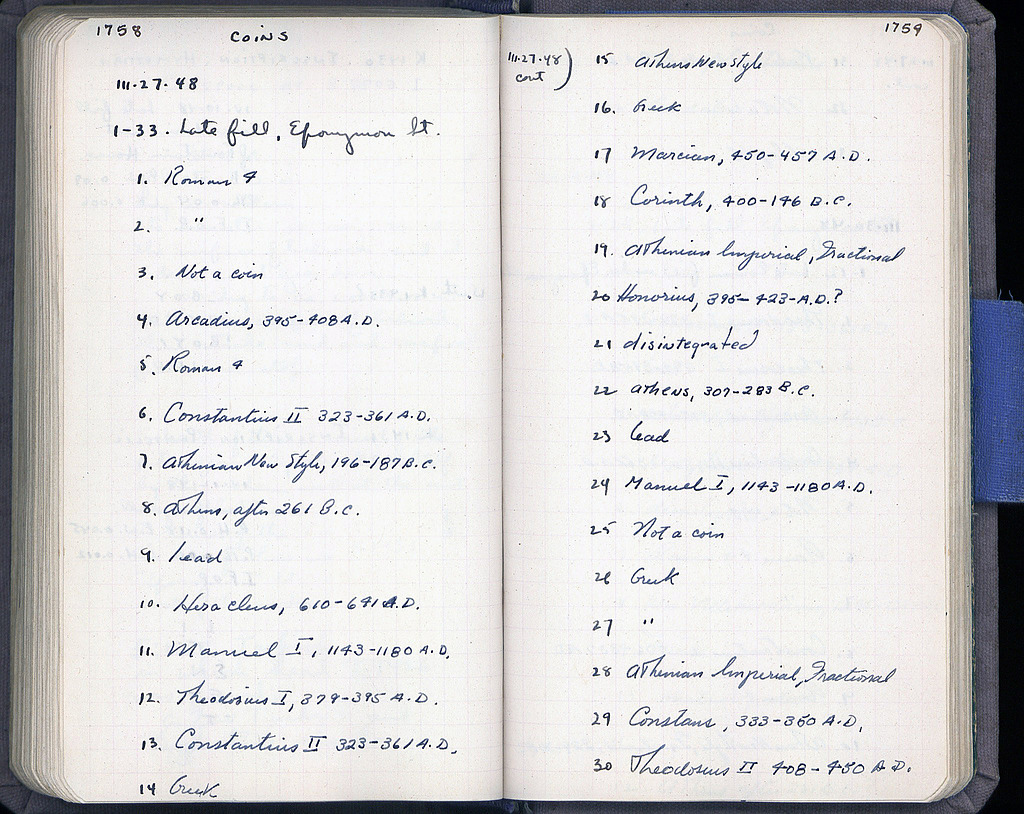 1758
COINS
III·27·48
1-33. Late fill, Eponymon St.
1. Roman 4
2. "
3. Not a coin
4. Arcadius, 395-408 A.D.
5. Roman 4
6. Constantius II 323-361 A.D.
7. Athenian New Style, 196-187 B.C.
8. Athens, after 261 B.C.
9. Lead
10. Heraclius, 610-641 A.D.
11. Manuel I, 1143-1180 A.D.
12. Theodosius I, 379-395 A.D.
13. Constantius II 323-361 A.D.
14 Greek
1759
III·27·48
cont)
15. Athens New Style
16. Greek
17 Marcian, 450-457 A.D.
18 Corinth, 400-146 B.C.
19. Athenian Imperial, Fractional
20 Honorius, 395-423-A.D.?
21 disintegrated
22 Athens, 307-283 B.C.
23 Lead
24 Manuel I, 1143-1180 A.D.
25 Not a coin
26 Greek
27 "
28 Athenian Imperial, Fractional
29 Constans, 333-350 A.D.
30 Theodosius II 408-450 A.D.